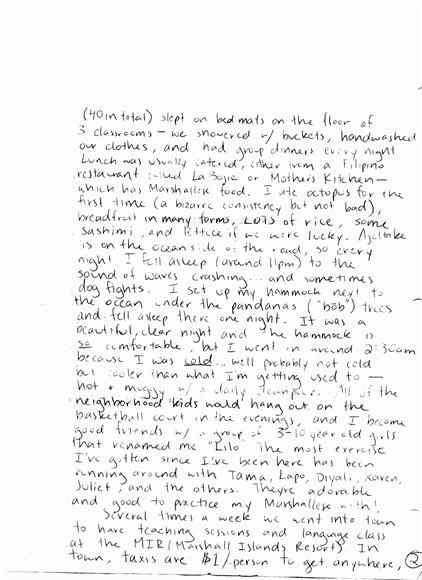 (40 in total) slept on bed mats on the floor of
3 classrooms - we showered w/ buckets, handwashed
our clothes, and had group dinners every night.
Lunch was usually catered, either from a Filipino
restaurant called La Bojie or Mother's Kitchen -
which has Marshallese food. I ate octopus for the
first time (a bizarre consistency but not bad),
breadfruit in many forms, LOTS of rice, some
sashimi, and lettuce if we were lucky. Ajeltake
is on the ocean side of the road, so every
night I fell asleep (around 11pm) to the
sound of waves crashing... and sometimes
dog fights. I set up my hammock next to
the ocean under the pandanas ("bōb") trees
and fell asleep there one night. It was a
beautiful, clear night and the hammock is
so comfortable, but I went in around 2:30am
because I was cold... well probably not cold
but cooler than what I'm getting used to -
hot & muggy w/ a daily downpour. All of the
neighborhood kids would hang out on the
basketball court in the evenings, and I became
good friends w/ a group of 3-10 year old girls
that renamed me "Lilo". The most exercise
I've gotten since I've been here has been
running around with Tama, Lapo, Diyali, Karen,
Juliet, and the others. They're adorable
and good to practice my Marshallese with!
Several times a week we went into town
to have teaching sessions and language class
at the MIR (Marshall Islands Resort). In
town, taxis are $1/person to get anywhere,
2